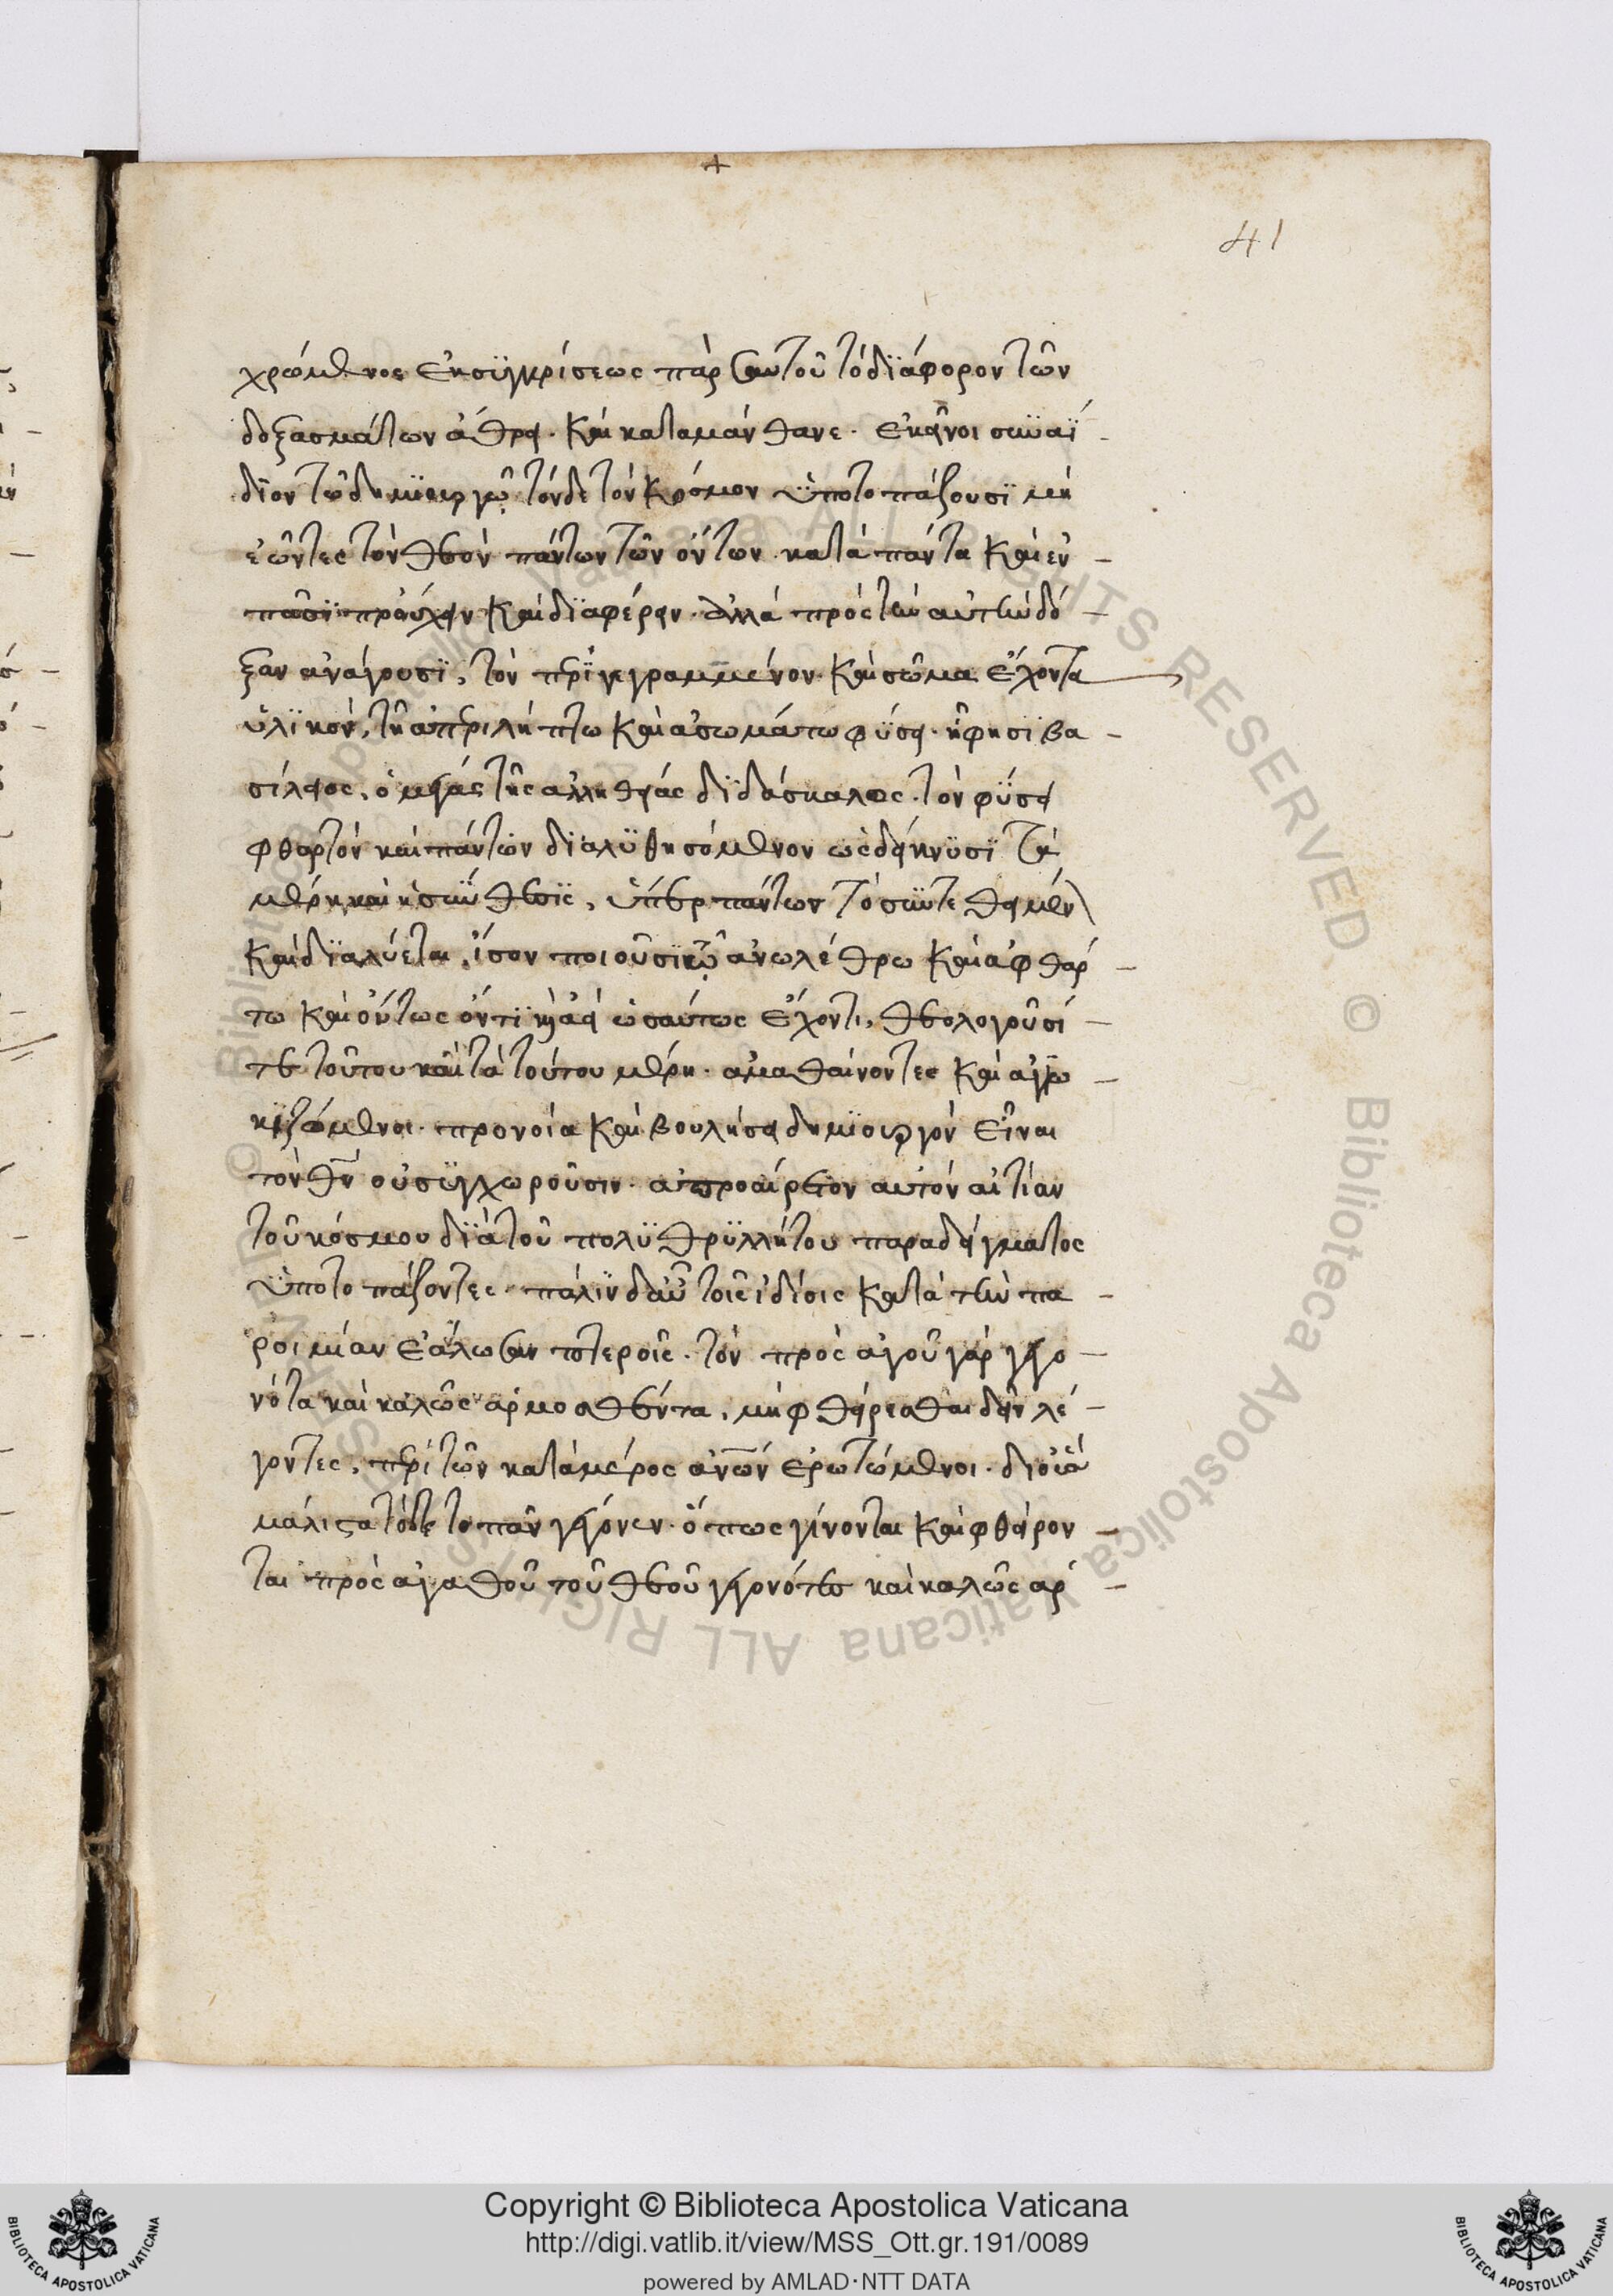 41
χρώμενος ἐκ συγκρίσεως παρ' ἑαυτοῦ τὸ διάφορον τῶν
δοξασμάτων ἄθρει. καὶ καταμάνθανε. ἐκεῖνοι συναΐ
διον τῶ δημιουργῶ τόνδε τὸν κόσμον ὑποτοπάζουσι μὴ
ἐῶντες τὸν θεὸν πάντων τῶν ὄντων κατὰ πάντα καὶ ἐν
πᾶσι προύχειν καὶ διαφέρειν. ἀλλὰ πρὸς τὴν αὐτὴν δό
ξαν ἀνάγουσι, τὸν περιγεγραμμένον καὶ σῶμα ἔχοντα
ὑλικὸν, τῆ ἀπεριλήπτω καὶ ἀσωμάτω φύσει. ἧ φησι βα
σίλειος, ὁ μέγας τῆς ἀληθείας διδάσκαλος. τὸν φύσει
φθαρτὸν καὶ πάντων διαλυθησόμενον ὡς δείκνυσι τὰ
μέρη καὶ ἡ σύνθεσις, ὑπὲρ πάντων τὸ συντεθειμέν
καὶ διαλύεται, ἴσον ποιοῦσι τῶ ἀνωλέθρω καὶ ἀφθάρ
τω καὶ ὄντως ὄντι καὶ ἀεὶ ὡσαύτως ἔχοντι, θεολογοῦσί
τε τοῦτον καὶ τὰ τούτου μέρη. ἀμαθαίνοντες καὶ ἀγροι
κιζόμενοι. προνοία καὶ βουλήσει δημιουργὸν εἶναι
τὸν θν οὐ συγχωροῦσιν. ἀπροαίρετον αὐτὸν αἰτίαν
τοῦ κόσμου διὰ τοῦ πολυθρυλλήτου παραδείγματος
ὑποτοπάζοντες. πάλιν δ' αὖ τοῖς ἰδίοις κατὰ τὴν πα
ροιμίαν ἑάλωσαν πτεροῖς. τὸν πρὸς ἀγοῦ γὰρ γεγο
νότα καὶ καλῶς ἁρμοσθέντα, μὴ φθείρεσθαι δεῖν λέ
γοντες, περὶ τῶν κατὰ μέρος ἀνων ἐρωτώμενοι. δι' οὓς
μάλιστα τόδε τὸ πᾶν γέγονεν. ὅπως γίνονται καὶ φθείρον
ται πρὸς ἀγαθοῦ τοῦ θεοῦ γεγονότες καὶ καλῶς ἁρ
© Biblioteca Apostolica Vaticana ALL RIGHTS RESERVED
Copyright © Biblioteca Apostolica Vaticana
http://digi.vatlib.it/view/MSS_Ott.gr.191/0089
powered by AMLAD·NTT DATA
BIBLIOTECA APOSTOLICA VATICANA
BIBLIOTECA APOSTOLICA VATICANA